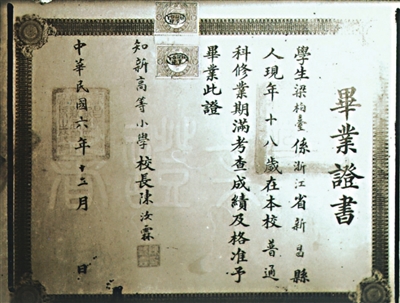 畢業證書
學生梁柏臺係浙江省新昌縣
人現年十八歲在本校普通
科修業期滿考查成績及格准予
畢業此證
知新高等小學校長陳汝霖
中華民國六年十二月 日